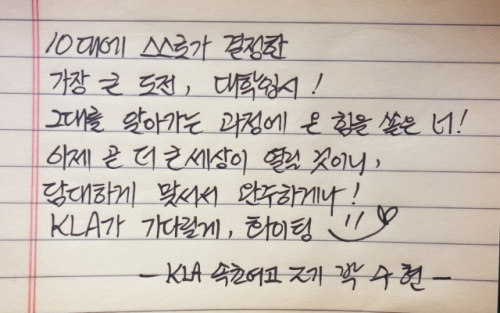 10대에 스스로가 결정한
가장 큰 도전, 대학입시!
그대를 알아가는 과정에 온 힘을 쏟은 너!
이제 곧 더 큰 세상이 열릴 것이니,
담대하게 맞서서 완주하게나!
KLA가 기다릴게, 화이팅
- KLA 속초여고 2기 곽수현 -